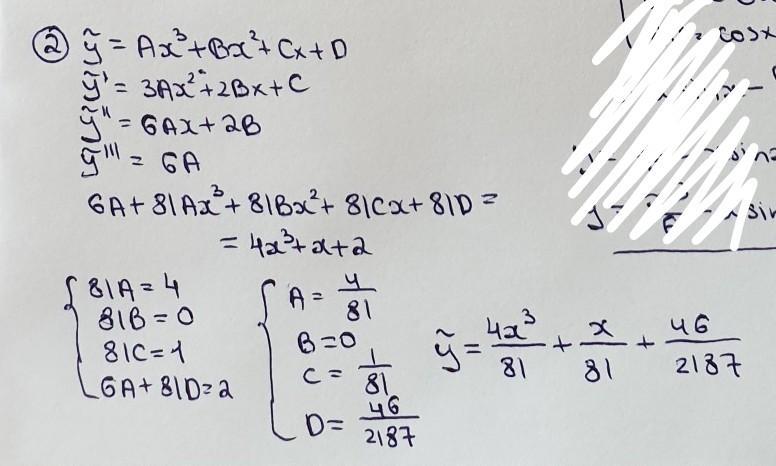 ② ỹ = Ax³+Bx²+Cx+D
ỹ' = 3Ax²+2Bx+C
ỹ'' = 6Ax+2B
ỹ''' = 6A
6A+81Ax³+81Bx²+81Cx+81D=
= 4x³+x+2
{ 81A=4
81B=0
81C=1
6A+81D=2
{ A = 4/81
B=0
C = 1/81
D = 46/2187
ỹ = 4x³/81 + x/81 + 46/2187
cosx